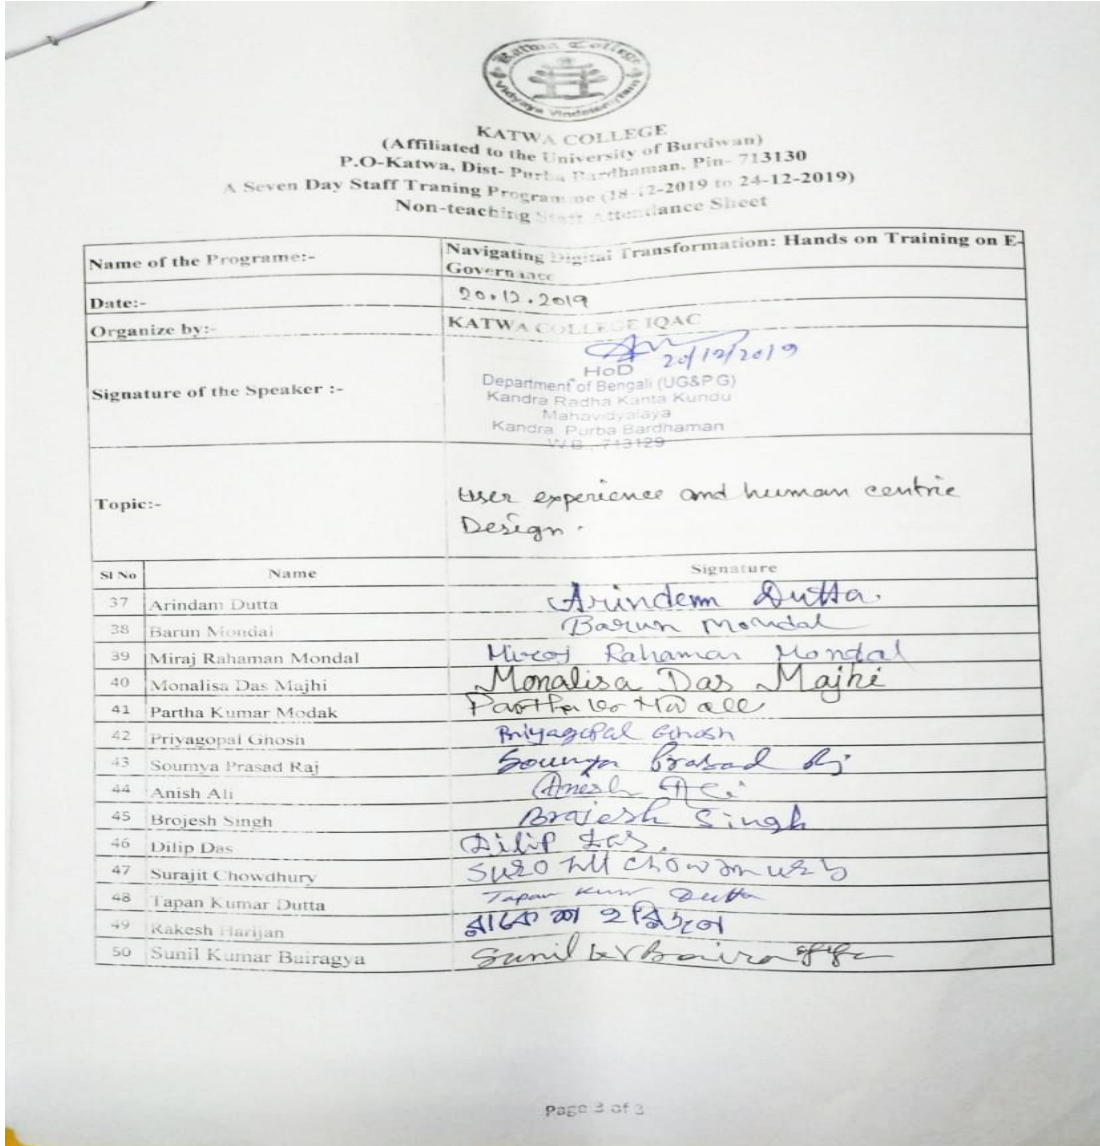 Katwa College
Vidyaya Vindateamritam
KATWA COLLEGE
(Affiliated to the University of Burdwan)
P.O-Katwa, Dist- Purba Bardhaman, Pin- 713130
A Seven Day Staff Traning Programme (18-12-2019 to 24-12-2019)
Non-teaching Staff Attendance Sheet
Name of the Programe:- Navigating Digital Transformation: Hands on Training on E-
Governance
Date:- 20.12.2019
Organize by:- KATWA COLLEGE IQAC
20/12/2019
HoD
Signature of the Speaker :- Department of Bengali (UG&PG)
Kandra Radha Kanta Kundu
Mahavidyalaya
Kandra, Purba Bardhaman
W.B., 713129
Topic:- User experience and human centric
Design.
Sl No Name Signature
37 Arindam Dutta Arindam Dutta.
38 Barun Mondal Barun Mondal
39 Miraj Rahaman Mondal Miraj Rahaman Mondal
40 Monalisa Das Majhi Monalisa Das Majhi
41 Partha Kumar Modak Partha
42 Priyagopal Ghosh Priyagopal Ghosh
43 Soumya Prasad Raj Soumya Prasad Raj
44 Anish Ali Anesh Ali
45 Brojesh Singh Brajesh Singh
46 Dilip Das Dilip Das.
47 Surajit Chowdhury Chowdhury
48 Tapan Kumar Dutta Tapan Kumar Dutta
49 Rakesh Harijan রাকেশ হরিজন
50 Sunil Kumar Bairagya Sunil Kr Bairagya
Page 3 of 3